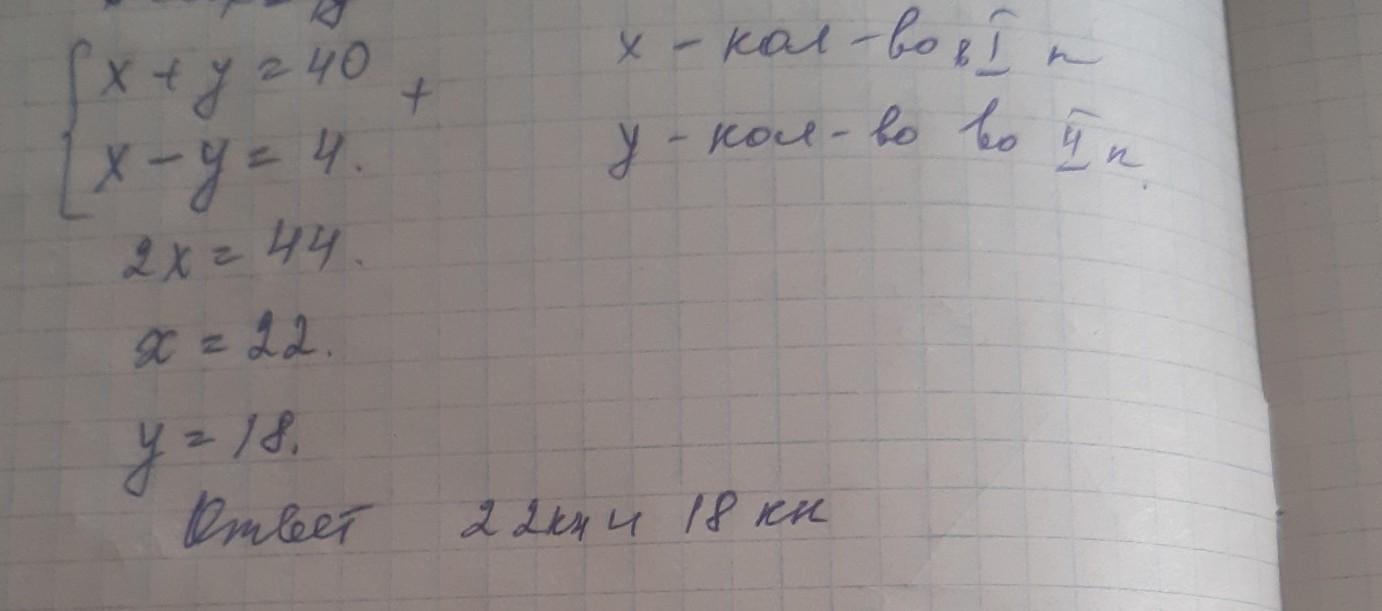 x + y = 40 +
x - y = 4.
x - кол-во в I п
y - кол-во во II п.
2x = 44.
x = 22.
y = 18.
Ответ 22кн и 18 кн